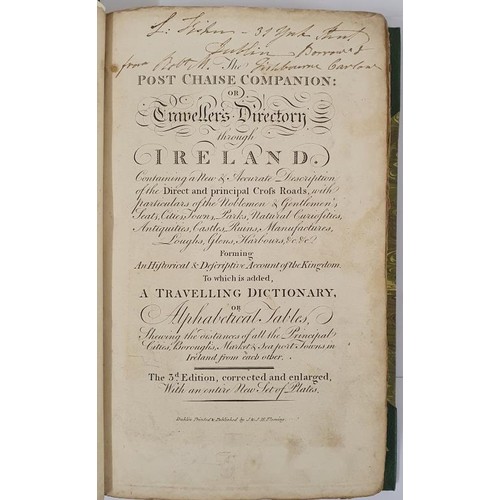 S: Fisher - 37 York Street
Dublin Borrowed
from Robt. M. Fishbourne Carlow
The
POST CHAISE COMPANION:
OR
Traveller's Directory
through
IRELAND.
Containing a New & Accurate Description
of the Direct and principal Croſs Roads, with
particulars of the Noblemen & Gentlemen's
Seats, Cities, Towns, Parks, Natural Curioſities,
Antiquities, Castles, Ruins, Manufactures,
Loughs, Glens, Harbours, &c. &c.
Forming
An Hiſtorical & Deſcriptive Account of the Kingdom.
To which is added,
A TRAVELLING DICTIONARY,
OR
Alphabetical Tables,
Shewing the distances of all the Principal
Cities, Boroughs, Market & Sea port Towns, in
Ireland from each other.
The 3d. Edition, corrected and enlarged,
With an entire New Set of Plates.
Dublin Printed & Published by J. & J. H. Fleming